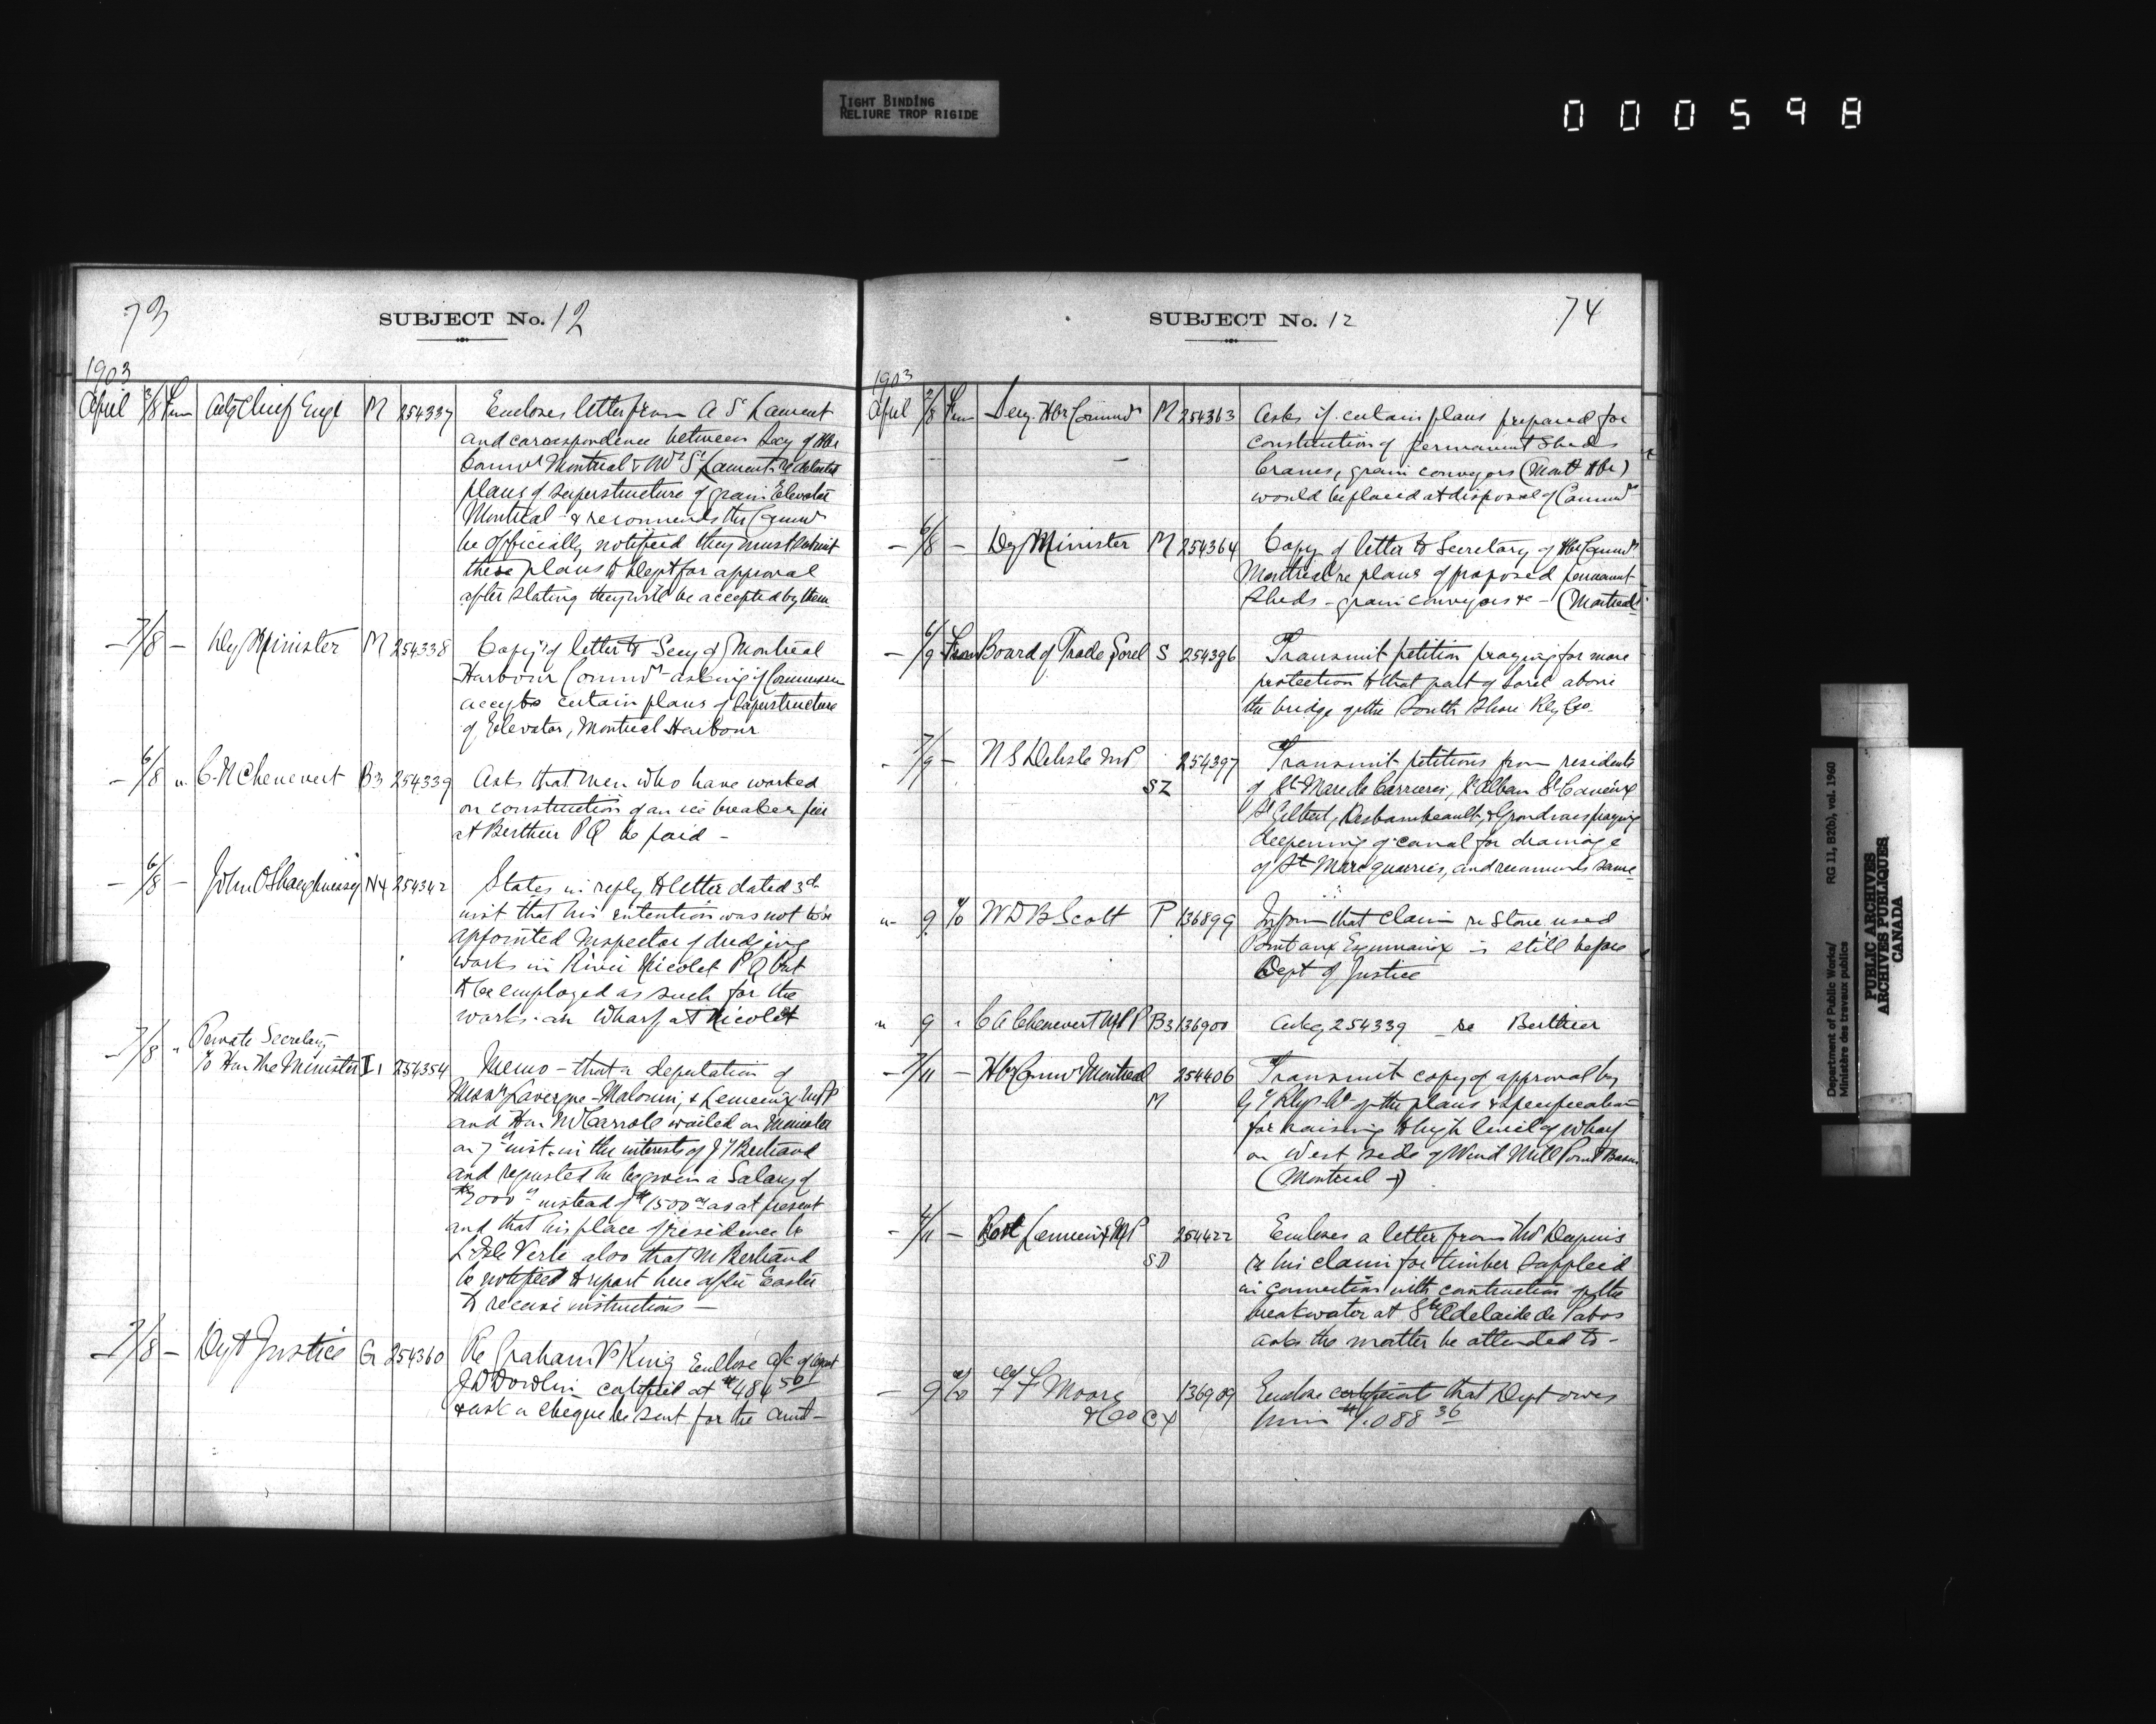 TIGHT BINDING
RELIURE TROP RIGIDE
000598
73
SUBJECT No. 12
1903
April 3/8 From Actg Chief Engr M 254337 Encloses letter from A St Laurent
and correspondence between Secy of Hbr
Commrs Montreal & Mr St Laurent re detailed
plans of superstructure of grain Elevator
Montreal & recommends the Commrs
be officially notified they must submit
these plans to Dept for approval
after stating they will be accepted by them
— 7/8 — Dey Minister M 254338 Copy of letter to Secy of Montreal
Harbour Commrs asking if Commissrs
accepts certain plans of Superstructure
of Elevator, Montreal Harbour
— 6/8 " C. N Chenevert B3 254339 Asks that men who have worked
on construction of an ice breaker pier
at Berthier P Q be paid —
— 6/8 — John O'Shaughnessy N4 254342 States in reply to letter dated 3d
inst that his intention was not to be
appointed Inspector of dredging
works in River Nicolet P Q but
to be employed as such for the
works on wharf at Nicolet
— 7/8 " Private Secretary
To Hon the Minister I1 254354 Memo — that a deputation of
Messrs Lavergne — Malouin, & Lemieux M.P
and Hon Mr Carroll waited on Minister
on 7th inst. in the interests of J T Bertrand
and requested he be given a Salary of
$2000 00 instead of $1500 00 as at present
and that his place of residence be
L'Isle Verte also that Mr Bertrand
be notified to report here after Easter
to receive instructions —
— 7/8 — Dept Justice G 254360 Re Graham Vs King Enclose a/c of agent
J D Dowlin certified at $484 50
& ask a cheque be sent for the amt —
SUBJECT No. 12
74
1903
April 2/8 From Secy Hbr Commrs M 254363 Asks if certain plans prepared for
construction of permanent Sheds
Cranes, grain conveyors (Mont Hbr)
would be placed at disposal of Commrs
— 6/8 — Dey Minister M 254364 Copy of letter to Secretary of Hbr Commrs
Montreal re plans of proposed permanent
sheds — grain conveyors &c — (Montreal)
— 6/9 From Board of Trade Sorel S 254396 Transmit petition praying for more
protection to that part of Sorel above
the bridge of the South Shore Rly Co.
- 7/9 — N S Delisle M.P 254397 Transmit petitions from residents
SZ of St Marc de Carrieres, St Alban St Casimir
St Gilbert, Deschambeault, & Grondines praying
deepening of canal for drainage
of St Marc quarries, and recommends same
" 9 To W D B Scott P 136899 Inform that claim re Stone used
Point aux Esquimaux is still before
Dept of Justice
" 9 " C A Chenevert MPP B3 136900 Ackg 254339 re Berthier
— 7/11 — Hbr Commrs Montreal 254406 Transmit copy of approval by
M G T Rly Co of the plans & specification
for raising to high level of wharf
on West side of Wind Mill Point Basin
(Montreal —)
— 4/11 — Rod Lemieux MP 254422 Encloses a letter from Mr Dupuis
SD re his claim for timber supplied
in connection with construction of the
breakwater at Ste Adelaide de Pabos
asks the matter be attended to —
— 9 To F F Moore 136909 Enclose certificate that Dept owes
& Co CX him $1.088 36
Department of Public Works/ RG 11, B2(b), vol. 1960
Ministère des travaux publics
PUBLIC ARCHIVES
ARCHIVES PUBLIQUES
CANADA